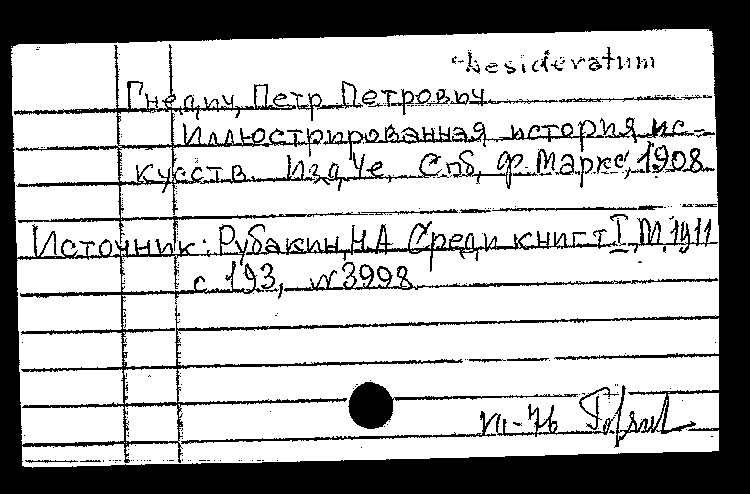 desideratum
Гнедич, Петр Петрович
Иллюстрированная история ис-
кусств. Изд, Че, Спб, ф. Маркс, 1908
Источник: Рубакин, Н.А Среди книг т I, М, 1911
с 193, №3998
VII-76